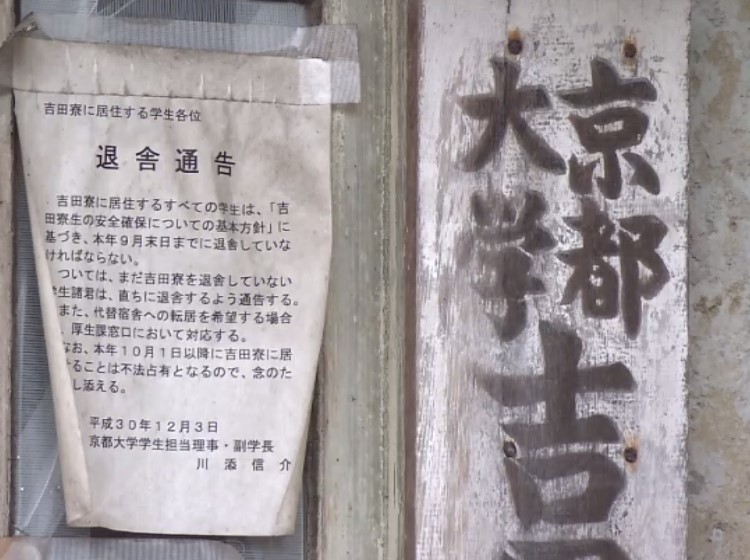 吉田寮に居住する学生各位
退舎通告
吉田寮に居住するすべての学生は、「吉
田寮生の安全確保についての基本方針」に
基づき、本年9月末日までに退舎していな
ければならない。
ついては、まだ吉田寮を退舎していない
学生諸君は、直ちに退舎するよう通告する。
また、代替宿舎への転居を希望する場合
、厚生課窓口において対応する。
なお、本年10月1日以降に吉田寮に居
することは不法占有となるので、念のた
し添える。
平成30年12月3日
京都大学学生担当理事・副学長
川添信介
京都
大学
吉